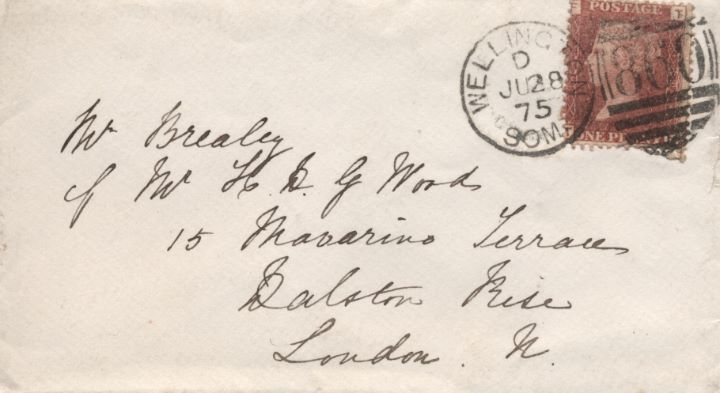 POSTAGE
WELLINGTON
D
JU 28
75
SOM
860
ONE PE
Mr Brealey
c/ Mr H. D. G Woods
15 Navarino Terrace
Dalston Rise
London. N.